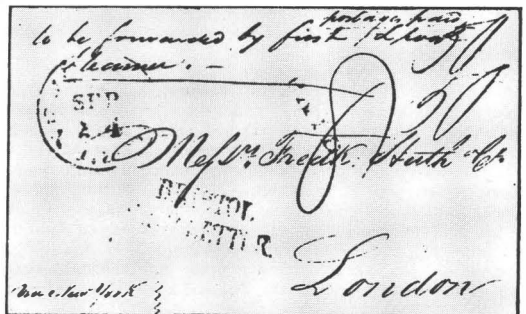 postage paid
to be forwarded by first
steamer. –
SEP
24
8
Messrs. Fredk. Huth & Co
BRISTOL
SHIP LETTER
London
via New York